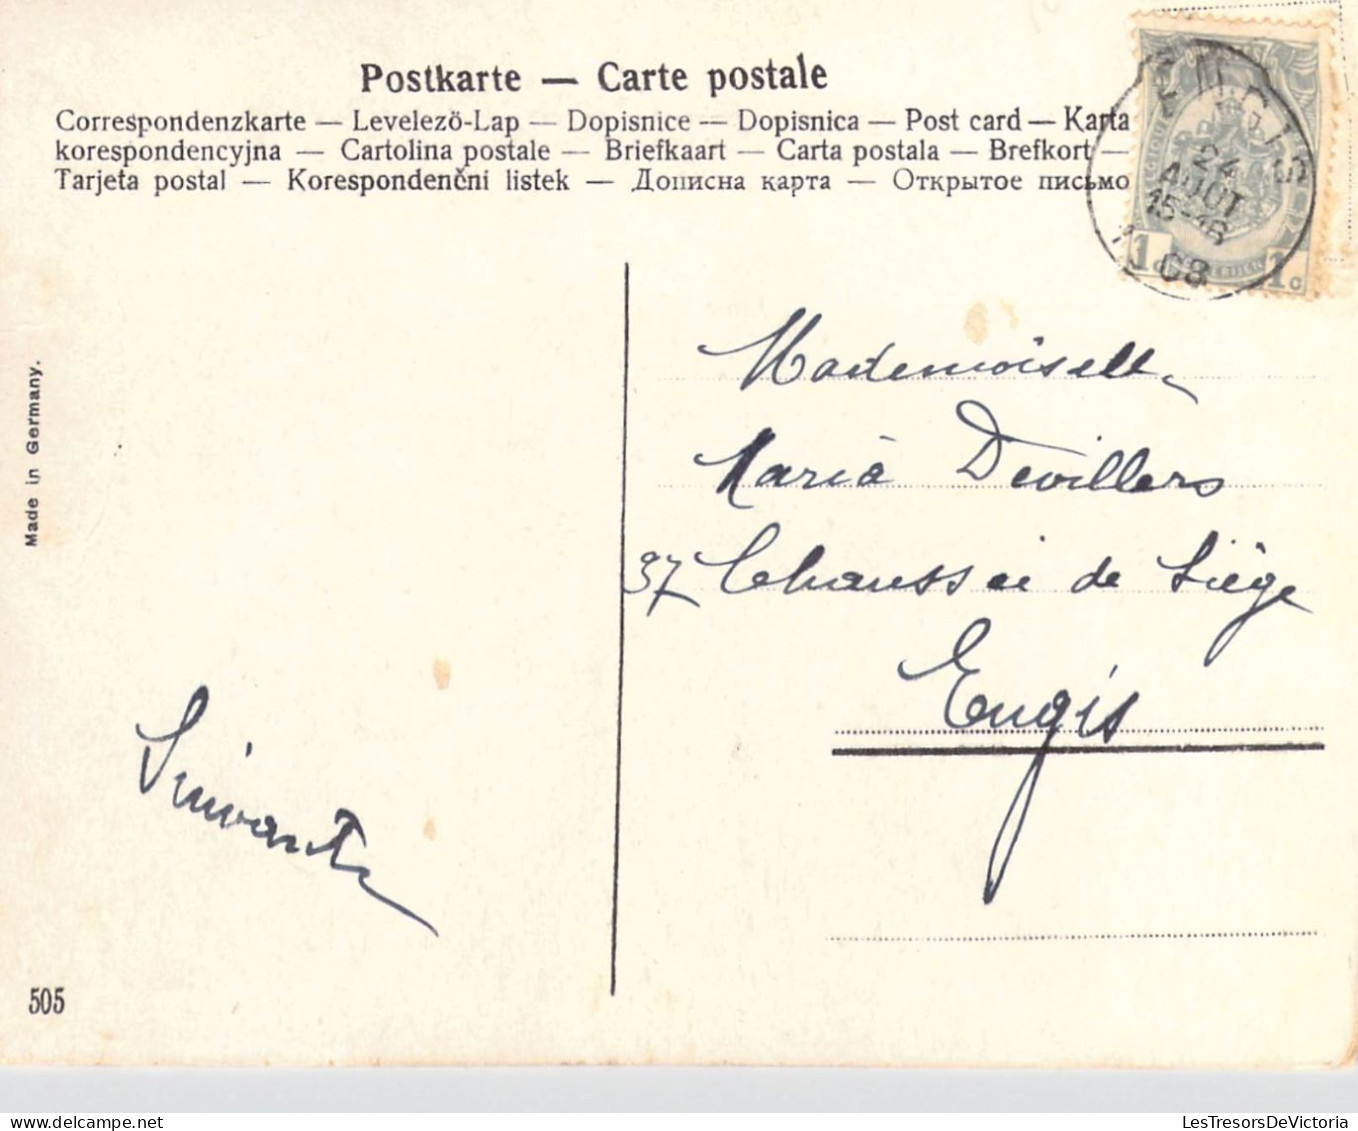 Postkarte — Carte postale
Correspondenzkarte — Levelező-Lap — Dopisnice — Dopisnica — Post card — Karta
korespondencyjna — Cartolina postale — Briefkaart — Carta postala — Brefkort —
Tarjeta postal — Korespondenčni listek — Дописна карта — Открытое письмо
ENGIS
24
AOUT
15-16
1908
1 1c
Made in Germany.
Mademoiselle
Maria Devillers
37 Chaussée de Liège
Engis
505
LesTresorsDeVictoria